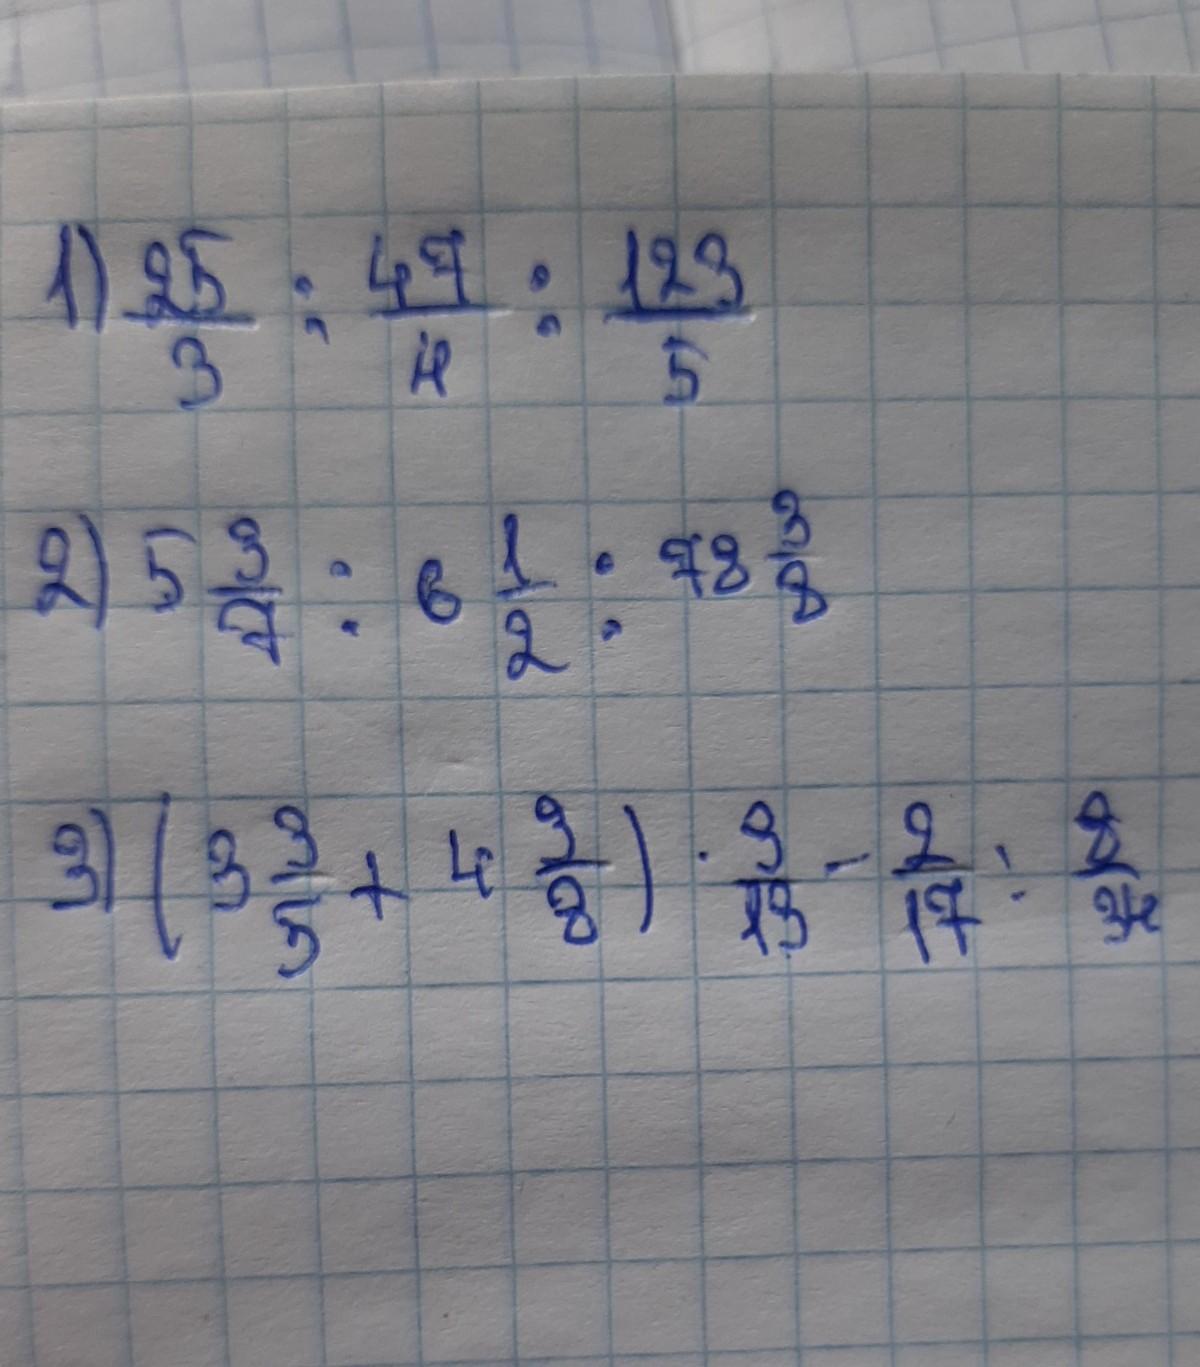 1) 25/3 : 47/4 : 123/5
2) 5 3/7 : 6 1/2 : 78 3/8
3) (3 3/5 + 4 3/8) · 3/13 - 2/17 : 8/34